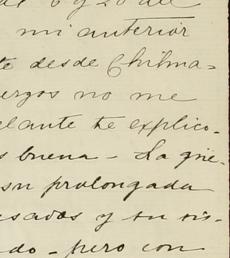 mi anterior
te desde Chilma=
ergos no me
elante te explico.
s buena - La gue-
su prolongada
esados y su sis-
do - pero con